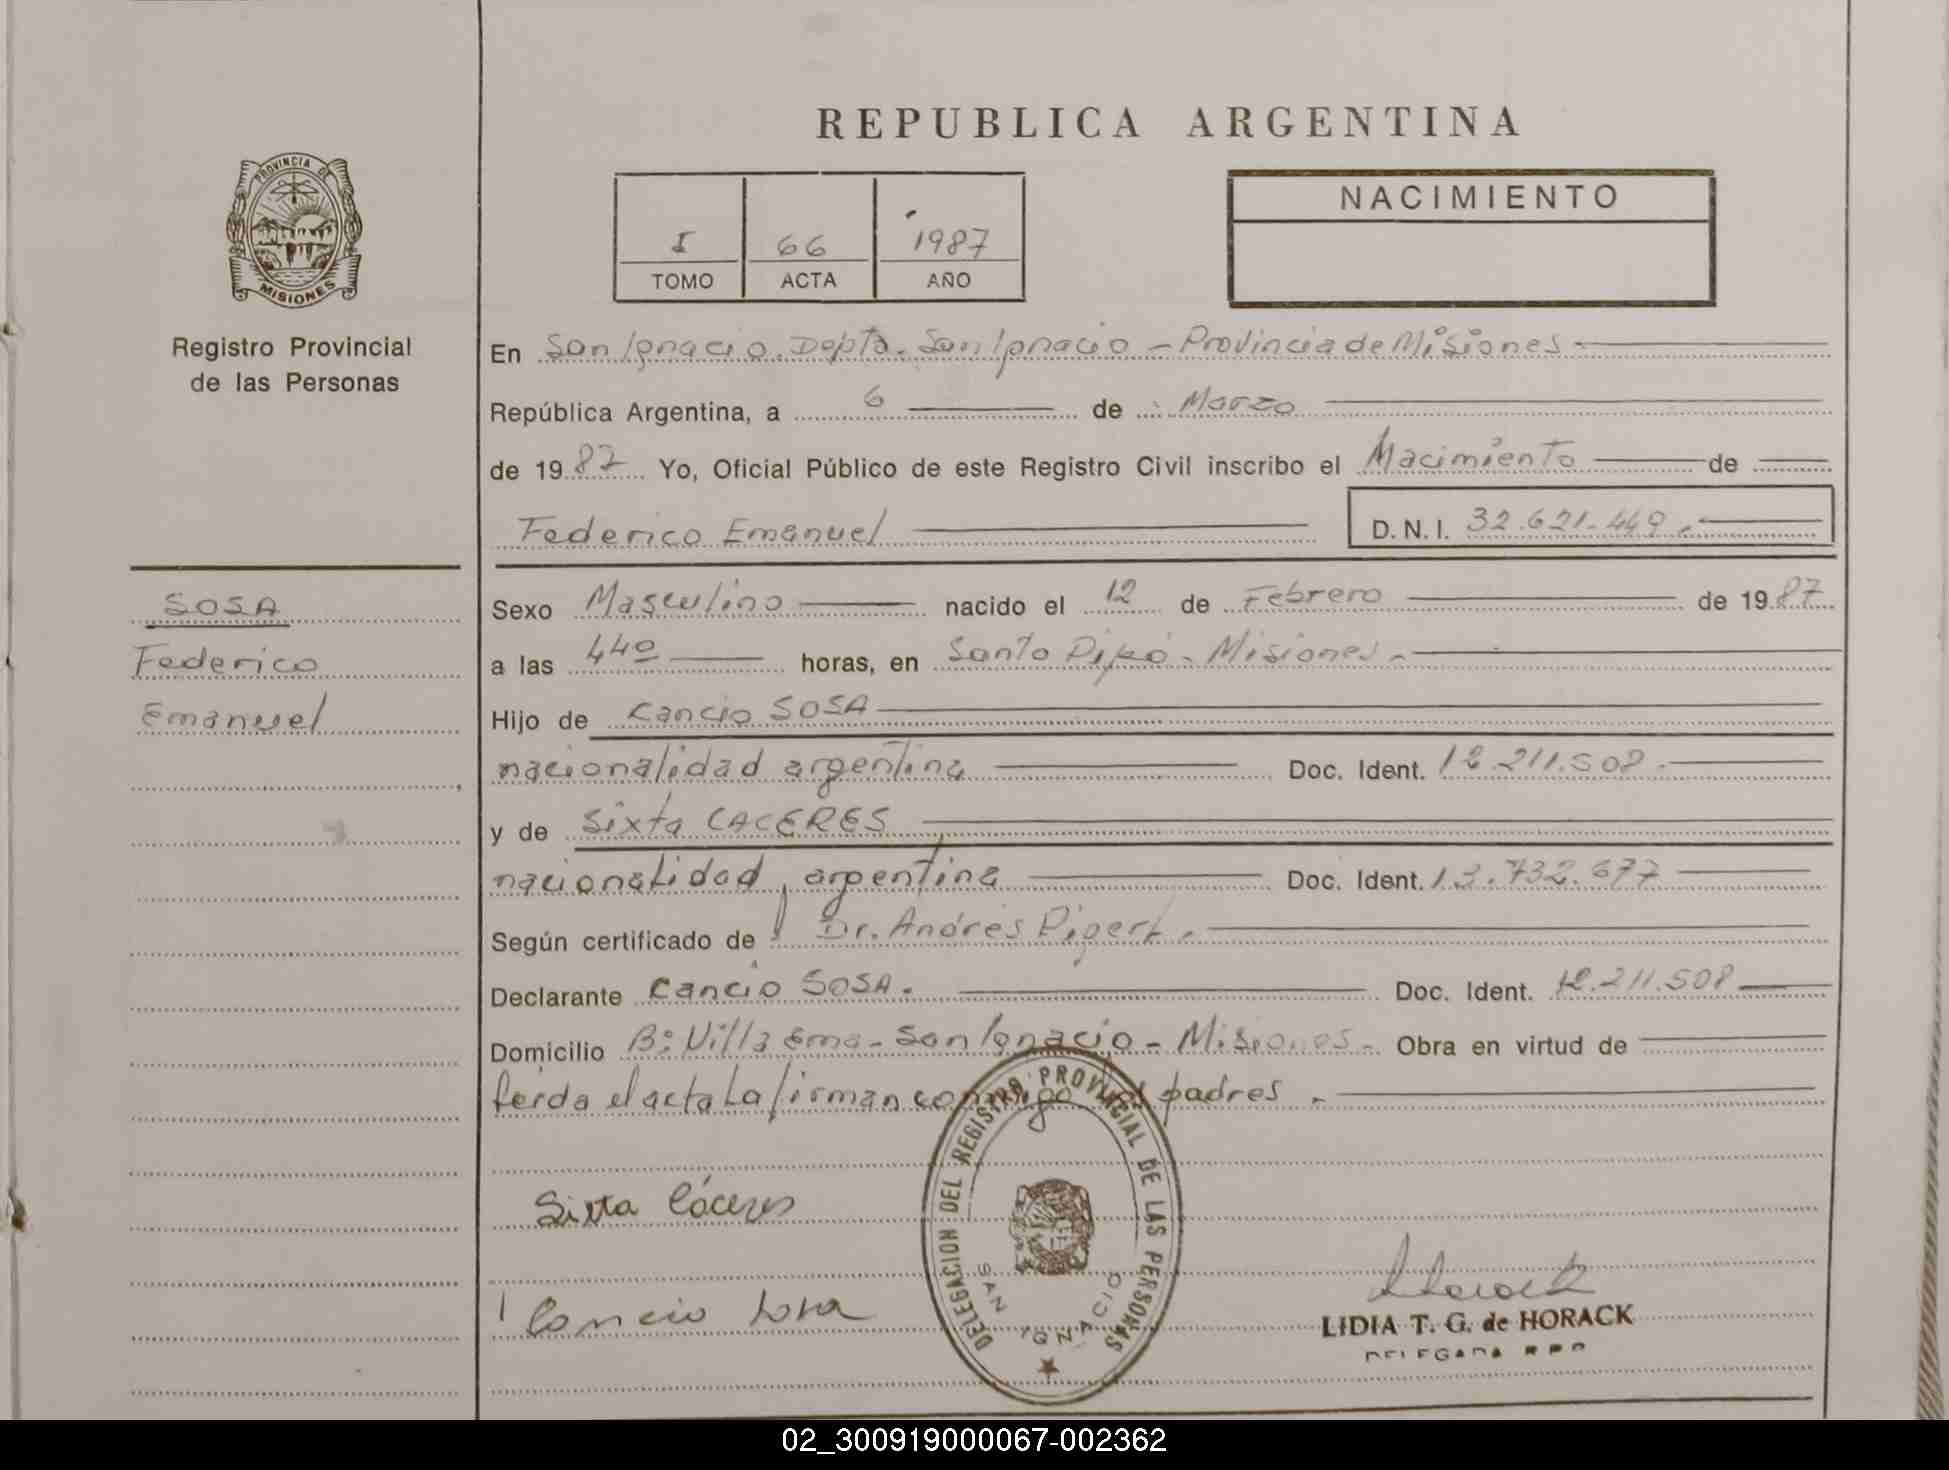 REPUBLICA ARGENTINA
PROVINCIA DE MISIONES
Registro Provincial
de las Personas
I 66 1987
TOMO ACTA AÑO
NACIMIENTO
En San Ignacio. Depto. San Ignacio - Provincia de Misiones -
República Argentina, a 6 de Marzo
de 1987 Yo, Oficial Público de este Registro Civil inscribo el Nacimiento de
Federico Emanuel D.N.I. 32.621.449.-
SOSA
Federico
Emanuel
Sexo Masculino nacido el 12 de Febrero de 1987
a las 440 horas, en Santo Pipó - Misiones.-
Hijo de Cancio SOSA
nacionalidad argentina Doc. Ident. 12.211.508.-
y de Sixta CACERES
nacionalidad argentina Doc. Ident. 13.732.677
Según certificado de Dr. Andrés
Declarante Cancio SOSA. Doc. Ident. 12.211.508
Domicilio Bº Villa Ema - San Ignacio - Misiones - Obra en virtud de
leida el acta La firman conmigo los padres .-
Sixta Cáceres
Cancio Sosa
DELEGACION DEL REGISTRO PROVINCIAL DE LAS PERSONAS
SAN IGNACIO
LIDIA T. G. de HORACK
DELEGADA
02_300919000067-002362